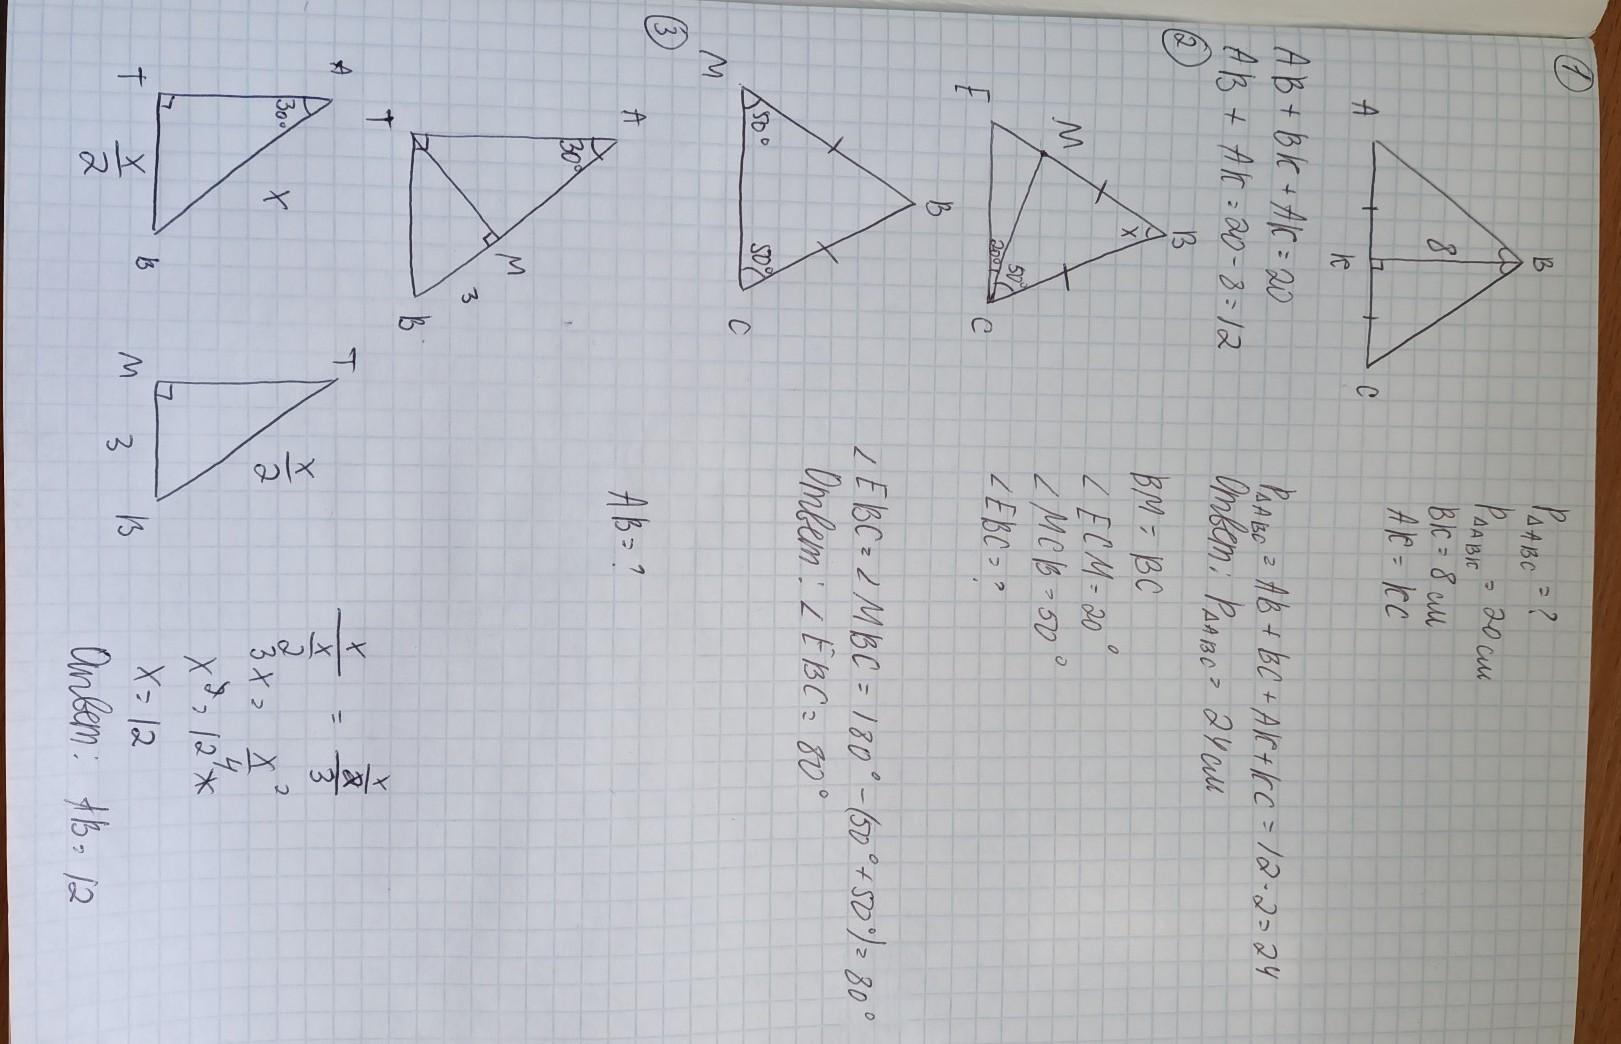 1
A
B
C
K
8
P△ABC = ?
P△ABK = 20 см
BK = 8 см
AK = KC
AB + BK + AK = 20
AB + AK = 20 - 8 = 12
P△ABC = AB + BC + AK + KC = 12 · 2 = 24
Ответ: P△ABC = 24 см
2
E
M
B
C
x
20°
50°
BM = BC
∠ECM = 20°
∠MCB = 50°
∠EBC = ?
M
B
C
50°
50°
∠EBC = ∠MBC = 180° - (50° + 50°) = 80°
Ответ: ∠EBC = 80°
3
A
T
M
B
30°
3
AB = ?
A
T
B
30°
x
x/2
T
M
B
3
x/2
x/(x/2) = (x/2)/3
3x = x²/4
x² = 12x
x = 12
Ответ: AB = 12